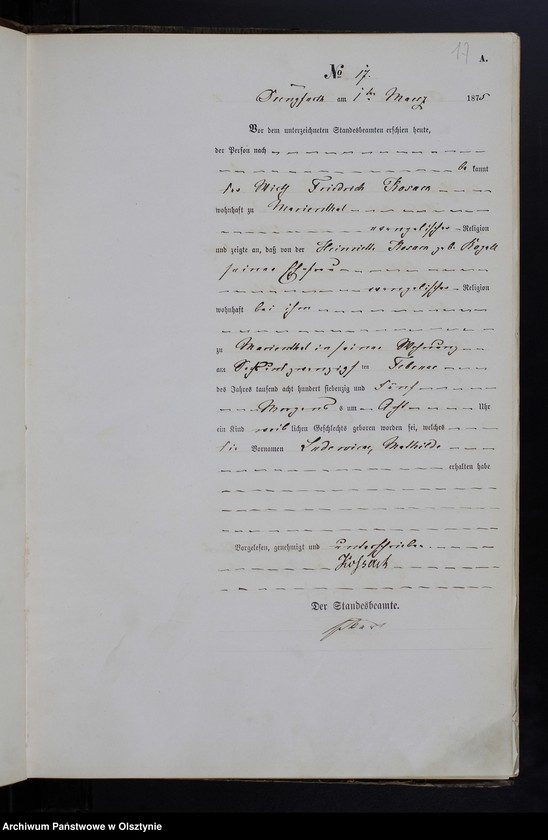 17
A.
№ 17.
am 1ten Maerz 1875
Vor dem unterzeichneten Standesbeamten erschien heute,
der Person nach
be kannt
der Wirth Friedrich Kosack
wohnhaft zu Marienthal
evangelischer Religion
und zeigte an, daß von der Heinriette Kosack geb.
seiner Ehefrau
evangelischer Religion
wohnhaft bei ihm
zu Marienthal in seiner Wohnung
am Sechsundzwanzigsten Februar
des Jahres tausend acht hundert siebenzig und Fünf
Morgens um Acht Uhr
ein Kind weib lichen Geschlechts geboren worden sei, welches
die Vornamen Ludowica, Mathilde
erhalten habe
Vorgelesen, genehmigt und unterschrieben
Kossack
Der Standesbeamte.
Archiwum Państwowe w Olsztynie